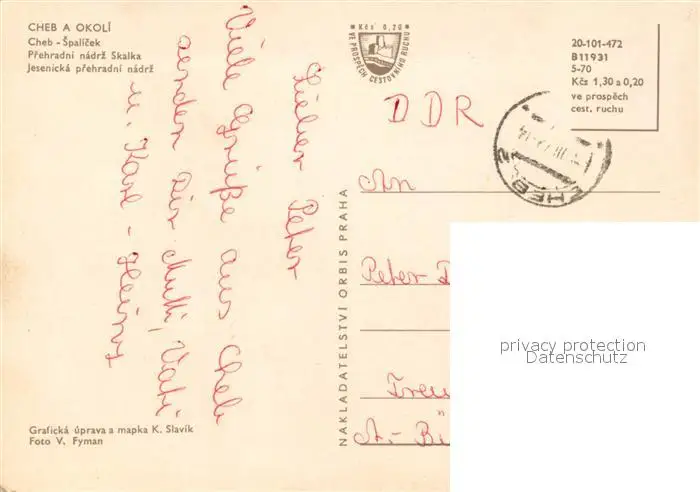 CHEB A OKOLÍ
Cheb - Špalíček
Přehradní nádrž Skalka
Jesenická přehradní nádrž
Lieber Peter
Viele Grüße aus Cheb
senden Dir Mutti, Vati
u. Karl-Heinz
Grafická úprava a mapka K. Slavík
Foto V. Fyman
NAKLADATELSTVÍ ORBIS PRAHA
Kčs 0,20
VE PROSPĚCH CESTOVNÍHO RUCHU
20-101-472
B11931
5-70
Kčs 1,30 a 0,20
ve prospěch
cest. ruchu
CHEB 2
DDR
An
Peter
A.-Bü
privacy protection
Datenschutz